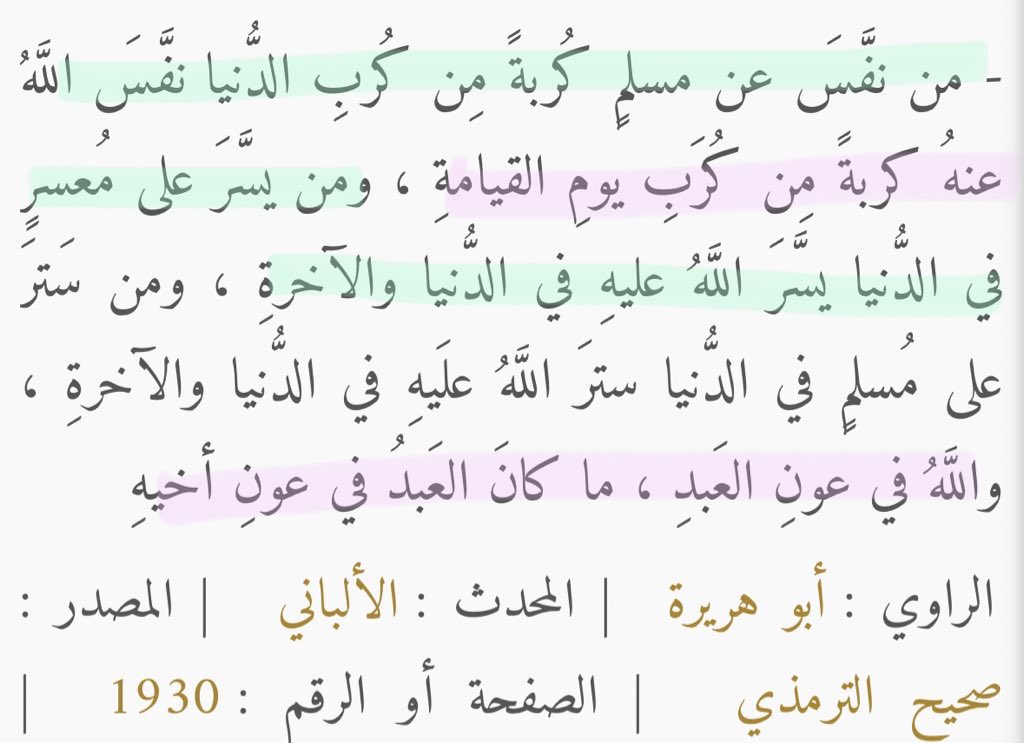 - من نفَّسَ عن مسلمٍ كُربةً مِن كُرَبِ الدُّنيا نفَّسَ اللَّهُ
عنهُ كربةً مِن كُرَبِ يومِ القيامةِ ، ومن يسَّرَ على مُعسرٍ
في الدُّنيا يسَّرَ اللَّهُ عليهِ في الدُّنيا والآخرةِ ، ومن سَترَ
على مُسلمٍ في الدُّنيا سترَ اللَّهُ علَيهِ في الدُّنيا والآخرةِ ،
واللَّهُ في عونِ العَبدِ ، ما كانَ العَبدُ في عونِ أخيهِ
الراوي : أبو هريرة | المحدث : الألباني | المصدر :
صحيح الترمذي | الصفحة أو الرقم : 1930 |